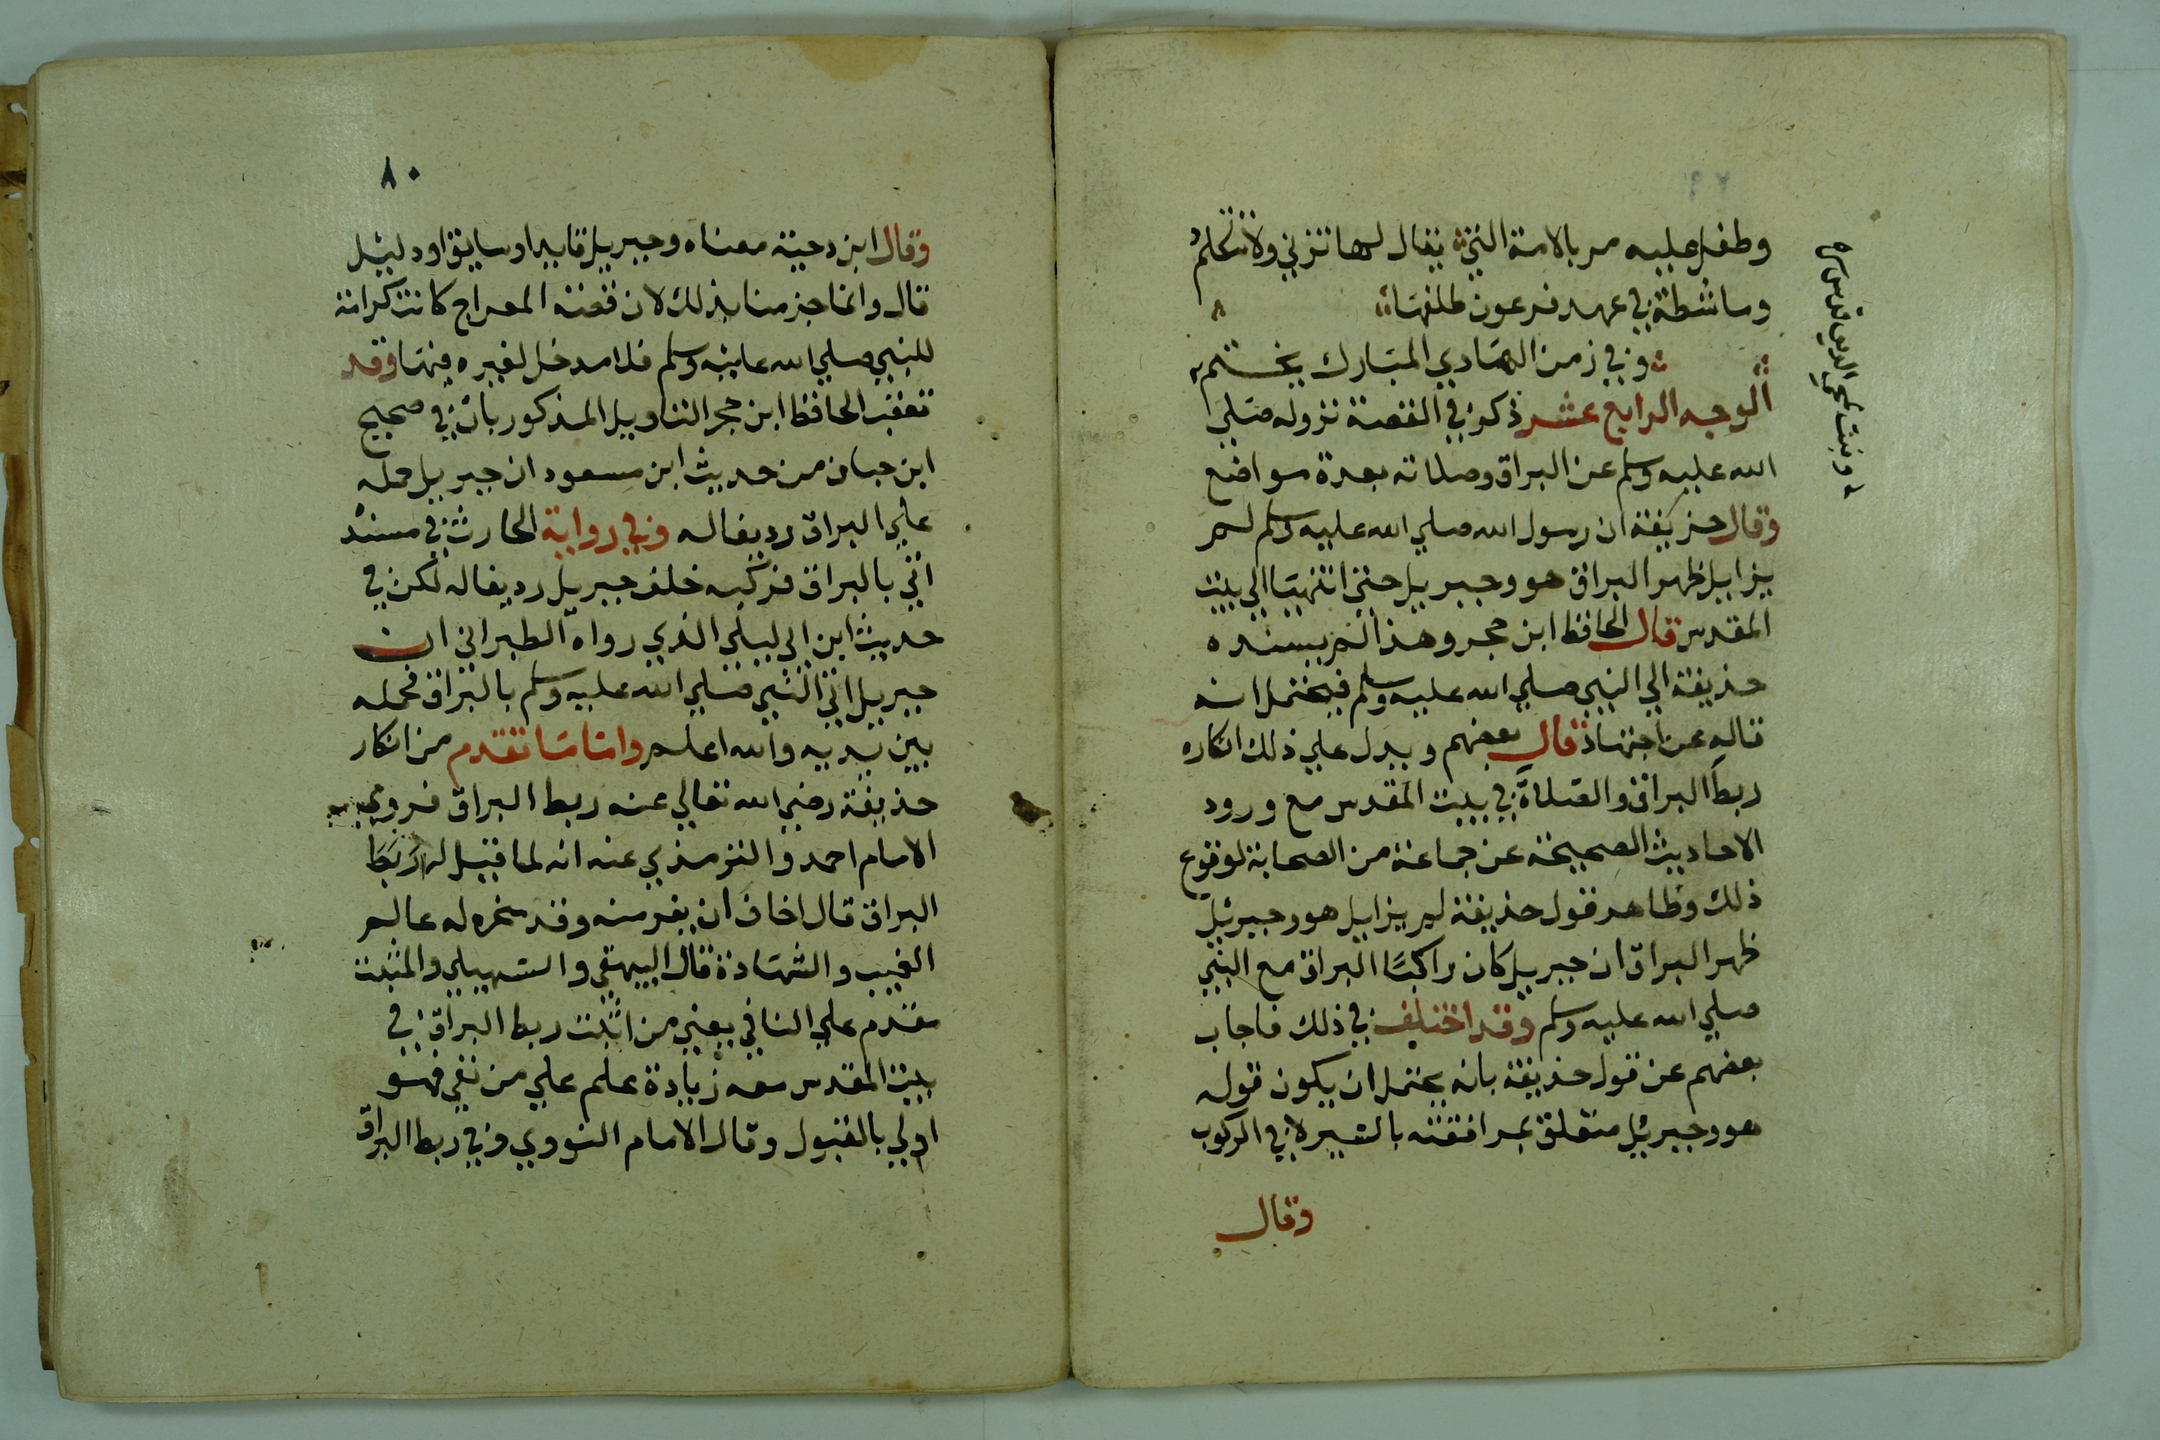 وطفل عليه مر بالامة التي يقال لها تزني ولا تتكلم
وماشطة في عهد فرعون طلفها
وفي زمن الهادي المبارك يختم
الوجه الرابع عشر ذكر في القصة نزوله صلي
الله عليه وسلم عن البراق وصلاته بعدة مواضع
وقال حذيفة ان رسول الله صلي الله عليه وسلم لم
يزايل ظهر البراق هو وجبريل حتي انتهيا الي بيت
المقدس قال الحافظ ابن حجر وهذا لم يسنده
حذيفة الي النبي صلي الله عليه وسلم فيحتمل انه
قاله عن اجتهاد قال بعضهم ويدل علي ذلك انكاره
ربط البراق والصلاة في بيت المقدس مع ورود
الاحاديث الصحيحة عن جماعة من الصحابة لوقوع
ذلك وظاهر قول حذيفة لم يزايل هو وجبريل
ظهر البراق ان جبريل كان راكبا البراق مع النبي
صلي الله عليه وسلم وقد اختلف في ذلك فاجاب
بعضهم عن قول حذيفة بانه يحتمل ان يكون قوله
هو وجبريل متعلق بمرافقته بالسير لا في الركوب
وقال
٨٠
وقال ابن دحية معناه وجبريل قايد او سايق او دليل
قال وانما جزمنا بذلك لان قصة المعراج كانت كرامة
للنبي صلي الله عليه وسلم فلا مدخل لغيره فيها وقد
تعقب الحافظ ابن حجر التاويل المذكور بان في صحيح
ابن حبان من حديث ابن مسعود ان جبريل حمله
علي البراق رديفا له وفي رواية الحارث في مسنده
اتي بالبراق فركبه خلف جبريل رديفا له لكن في
حديث ابن ابي ليلي الذي رواه الطبراني ان
جبريل اتي النبي صلي الله عليه وسلم بالبراق فحمله
بين يديه والله اعلم واما ما تقدم من انكار
حذيفة رضي الله تعالي عنه ربط البراق فروي
الامام احمد والترمذي عنه انه لما قيل له ربط
البراق قال اخاف ان يفر منه وقد سخره له عالم
الغيب والشهادة قال البيهقي والسهيلي والمثبت
مقدم علي النافي يعني من اثبت ربط البراق في
بيت المقدس معه زيادة علم علي من نفي فهو
اولي بالقبول وقال الامام النووي وفي ربط البراق